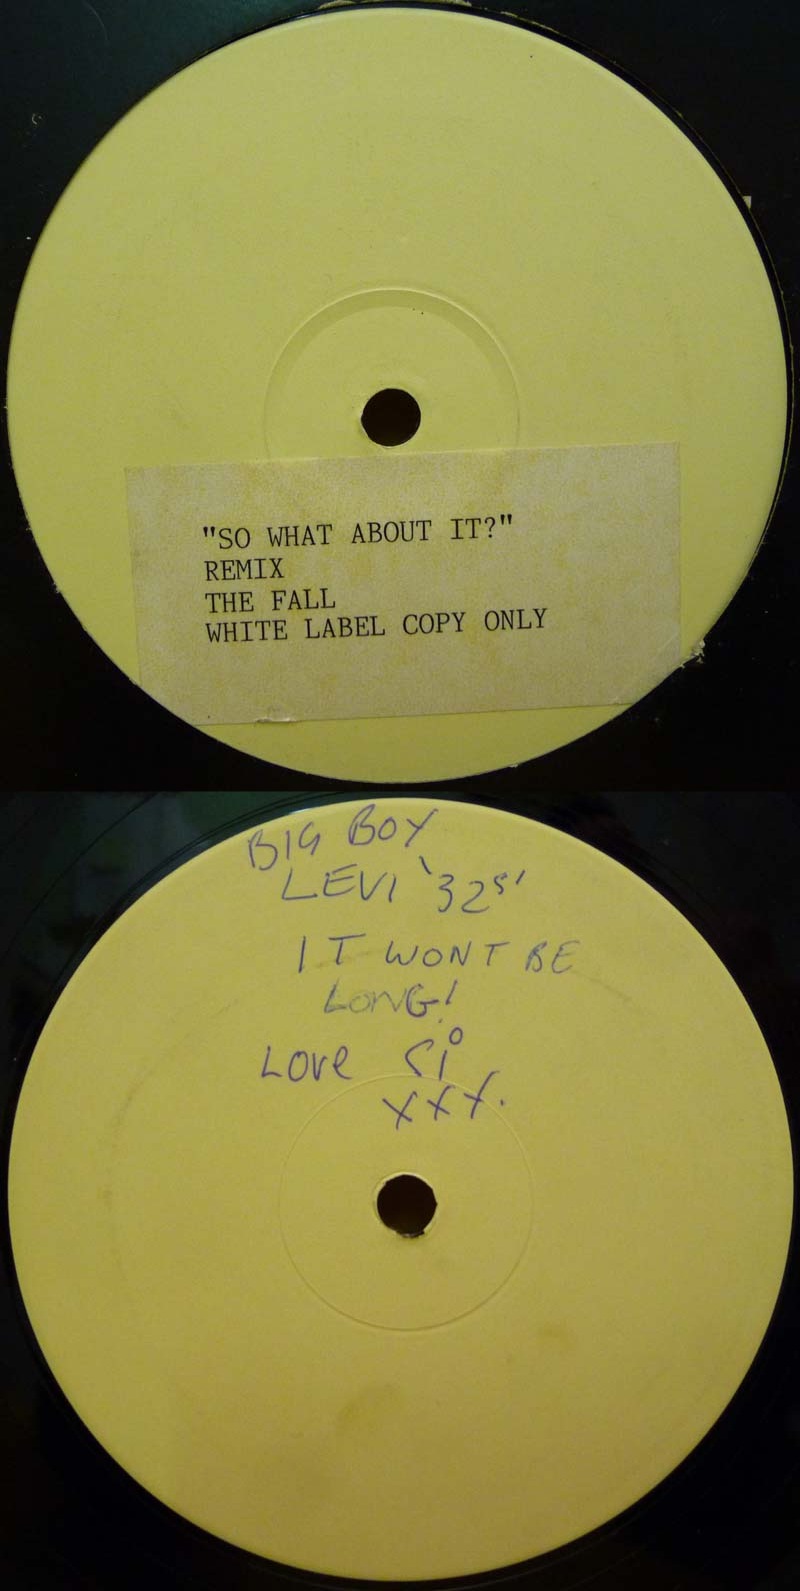 "SO WHAT ABOUT IT?"
REMIX
THE FALL
WHITE LABEL COPY ONLY
BIG BOY
LEVI '32s'
IT WONT BE
LONG!
LOVE Si
xxx.